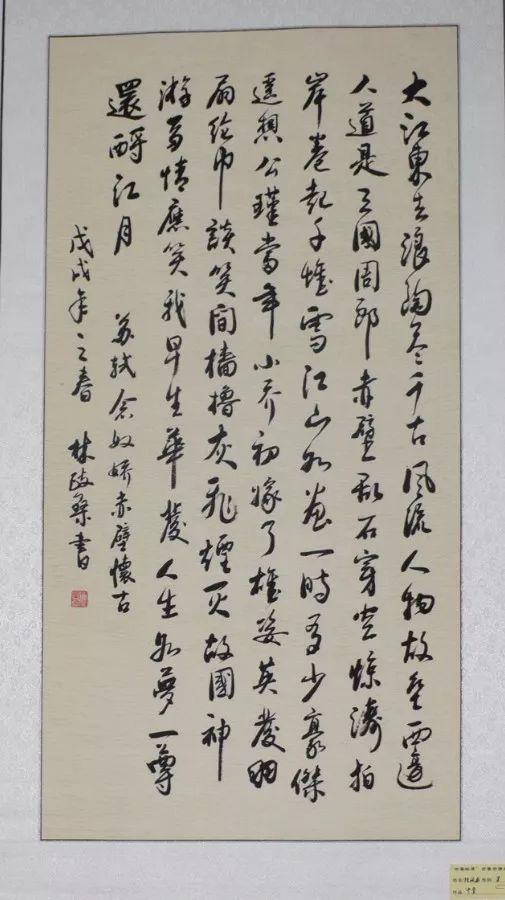 大江東去浪淘尽千古風流人物故壘西邊
人道是三國周郎赤壁乱石穿空惊濤拍
岸卷起千堆雪江山如画一時多少豪傑
遥想公瑾當年小乔初嫁了雄姿英發羽
扇纶巾談笑间檣櫓灰飛煙灭故國神
游多情應笑我早生華發人生如夢一尊
還酹江月 苏轼念奴娇赤壁懷古
戊戌年之春 林政書